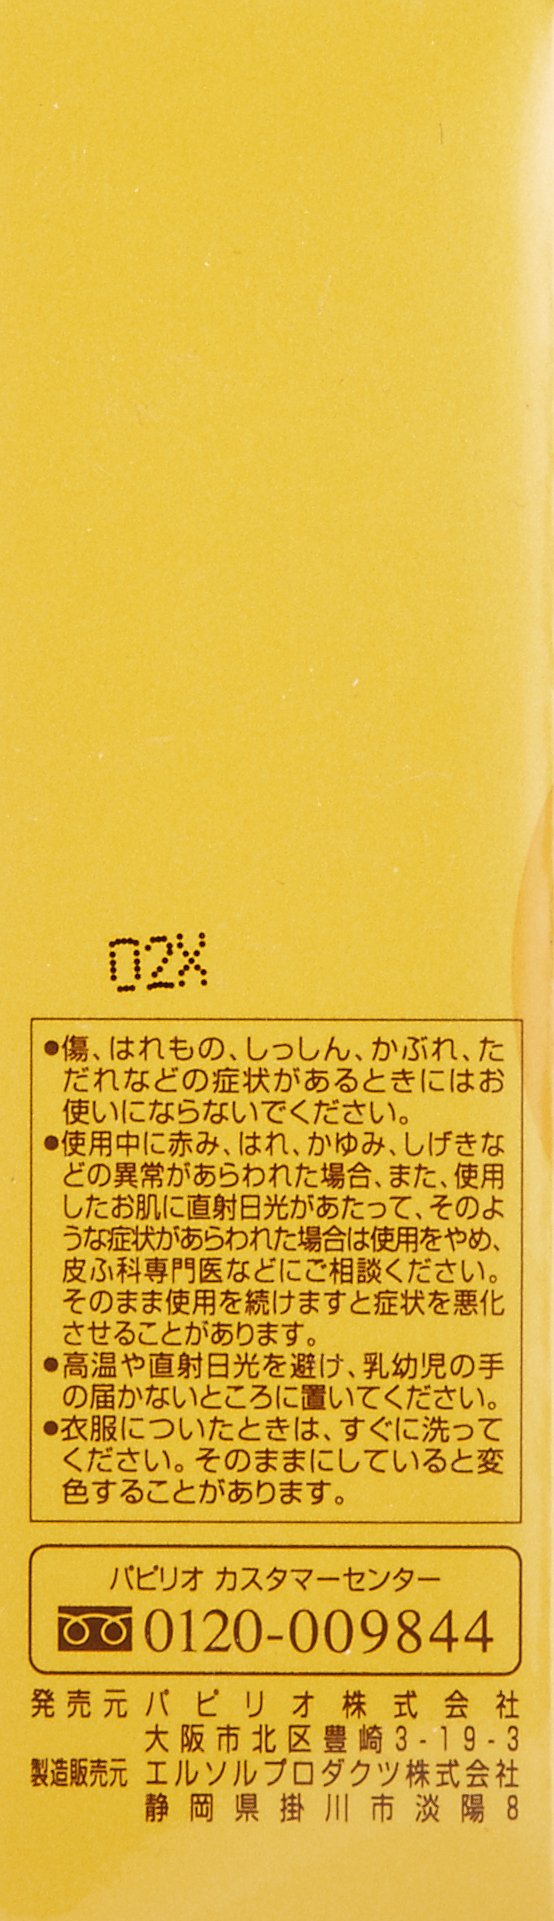 02X
●傷、はれもの、しっしん、かぶれ、た
だれなどの症状があるときにはお
使いにならないでください。
●使用中に赤み、はれ、かゆみ、しげきな
どの異常があらわれた場合、また、使用
したお肌に直射日光があたって、そのよ
うな症状があらわれた場合は使用をやめ、
皮ふ科専門医などにご相談ください。
そのまま使用を続けますと症状を悪化
させることがあります。
●高温や直射日光を避け、乳幼児の手
の届かないところに置いてください。
●衣服についたときは、すぐに洗って
ください。そのままにしていると変
色することがあります。
パピリオ カスタマーセンター
0120-009844
発売元 パピリオ株式会社
大阪市北区豊崎3-19-3
製造販売元 エルソルプロダクツ株式会社
静岡県掛川市淡陽8